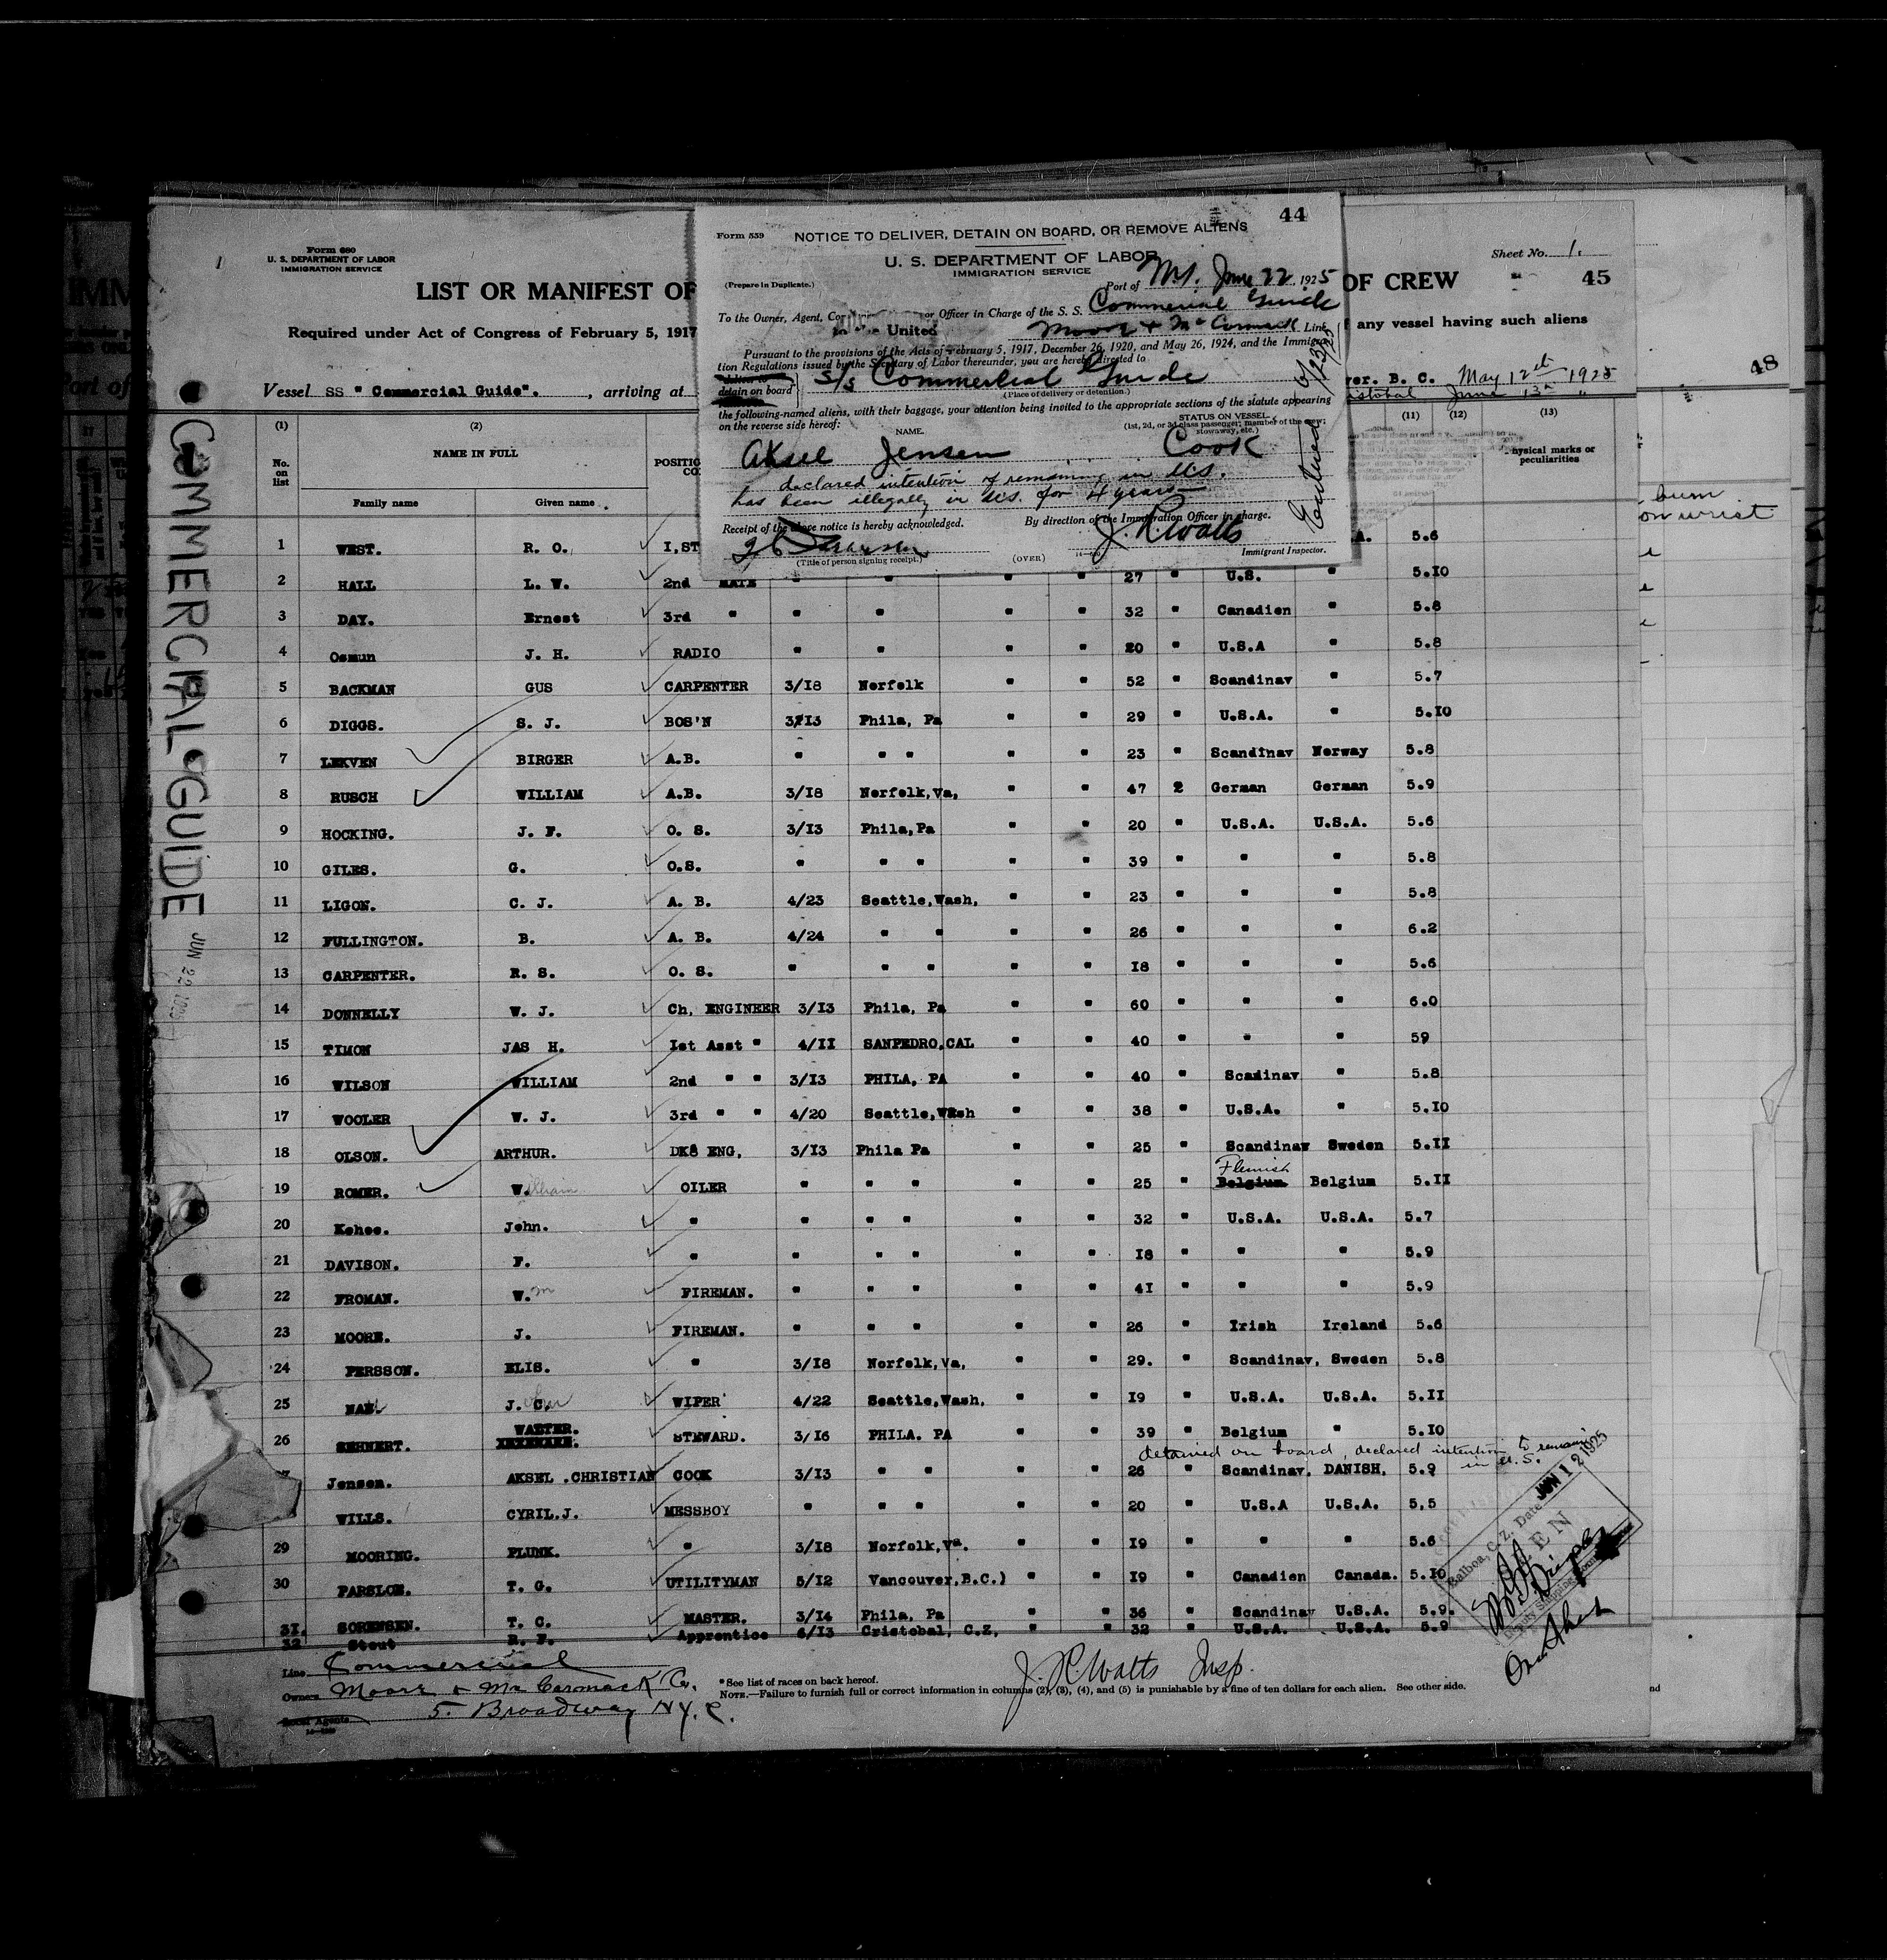 44
Form 559 NOTICE TO DELIVER, DETAIN ON BOARD, OR REMOVE ALIENS
U. S. DEPARTMENT OF LABOR
IMMIGRATION SERVICE
(Prepare in Duplicate.)
Port of N.Y. June 22, 1925
To the Owner, Agent, or Officer in Charge of the S. S. Commercial Guide
Moore + McCormack Line
Pursuant to the provisions of the Acts of February 5, 1917, December 26, 1920, and May 26, 1924, and the Immigra-
tion Regulations issued by the Secretary of Labor thereunder, you are hereby directed to
detain on board S/S Commercial Guide
(Place of delivery or detention.)
the following-named aliens, with their baggage, your attention being invited to the appropriate sections of the statute appearing
on the reverse side hereof:
NAME.
STATUS ON VESSEL.
(1st, 2d, or 3d class passenger; member of the crew; stowaway, etc.)
Aksel Jensen Cook
declared intention of remaining in U.S.
has been illegally in U.S. for 4 years
Receipt of the above notice is hereby acknowledged.
By direction of the Immigration Officer in charge.
J. R. Watts
(Title of person signing receipt.)
(OVER)
Immigrant Inspector.
Form 680
U. S. DEPARTMENT OF LABOR
IMMIGRATION SERVICE
Sheet No. 1.
45
LIST OR MANIFEST OF
OF CREW
Required under Act of Congress of February 5, 1917
to the United
any vessel having such aliens
48
Vessel SS " Commercial Guide". , arriving at
ver. B. C. May 12th 1925
istobal June 13th "
(1) (2) (11) (12) (13)
No. on list
NAME IN FULL
Family name Given name
POSITIO
physical marks or peculiarities
COMMERCIAL GUIDE
1 WEST. R. O. I,ST 5.6
2 HALL L. W. 2nd MATE " " " " 27 " U.S. " 5.10
3 DAY. Ernest 3rd " " " " " 32 " Canadien " 5.8
4 Osmun J. H. RADIO " " " " 20 " U.S.A " 5.8
5 BACKMAN GUS CARPENTER 3/18 Norfolk " " 52 " Scandinav " 5.7
6 DIGGS. S. J. BOS'N 3/13 Phila, Pa " " 29 " U.S.A. " 5.10
7 LEKVEN BIRGER A.B. " " " " " 23 " Scandinav Norway 5.8
8 RUSCH WILLIAM A.B. 3/18 Norfolk,Va, " " 47 2 German German 5.9
9 HOCKING. J. F. O. S. 3/13 Phila,Pa " " 20 " U.S.A. U.S.A. 5.6
10 GILES. G. O.S. " " " " " 39 " " " 5.8
11 LIGON. C. J. A. B. 4/23 Seattle,Wash, " " 23 " " " 5.8
12 FULLINGTON. B. A. B. 4/24 " " " " 26 " " " 6.2
13 CARPENTER. R. S. O. S. " " " " " 18 " " " 5.6
14 DONNELLY W. J. Ch, ENGINEER 3/13 Phila, Pa " " 60 " " " 6.0
15 TIMON JAS H. Ist Asst " 4/II SANPEDRO,CAL " " 40 " " " 59
16 WILSON WILLIAM 2nd " " 3/13 PHILA, PA " " 40 " Scadinav " 5.8
17 WOOLER W. J. 3rd " " 4/20 Seattle,Wash " " 38 " U.S.A. " 5.10
18 OLSON. ARTHUR. DK& ENG, 3/13 Phila Pa " " 25 " Scandinav Sweden 5.II
Flemish
19 ROMER. William OILER " " " " " 25 " Belgium Belgium 5.II
20 Kehoe. John. " " " " " " 32 " U.S.A. U.S.A. 5.7
21 DAVISON. F. " " " " " " 18 " " " 5.9
22 FROMAN. W.m FIREMAN. " " " " " 41 " " " 5.9
23 MOORE. J. FIREMAN. " " " " " 26 " Irish Ireland 5.6
24 PERSSON. ELIS. " 3/18 Norfolk,Va, " " 29. " Scandinav, Sweden 5.8
25 J. C. WIPER 4/22 Seattle,Wash. " " 19 " U.S.A. U.S.A. 5.II
26 SEHNERT. WALTER. STEWARD. 3/16 PHILA. PA " " 39 " Belgium " 5.10
detained on board, declared intention to remain in U.S.
7 Jensen. AKSEL .CHRISTIAN COOK 3/13 " " " " 26 " Scandinav. DANISH, 5.9
WILLS. CYRIL.J. MESSBOY " " " " " 20 " U.S.A U.S.A. 5,5
29 MOORING. PLUNK. " 3/18 Norfolk,Va. " " 19 " " " 5.6
30 PARSLOE. T. G. UTILITYMAN 5/12 Vancouver,B.C.) " " 19 " Canadien Canada. 5.10
31. SORENSEN. T. C. MASTER. 3/14 Phila, Pa " " 36 " Scandinav U.S.A. 5.9.
32 Stout R. F. Apprentice 6/13 Cristobal, C.Z, " " 32 " U.S.A. U.S.A. 5.9
Balboa, C. Z. Date JUN 12 1925
Line Commercial
Owners Moore & McCormack Co.
5 Broadway N.Y.C.
Local Agents
J. R. Watts Insp.
* See list of races on back hereof.
NOTE.—Failure to furnish full or correct information in columns (2), (3), (4), and (5) is punishable by a fine of ten dollars for each alien. See other side.